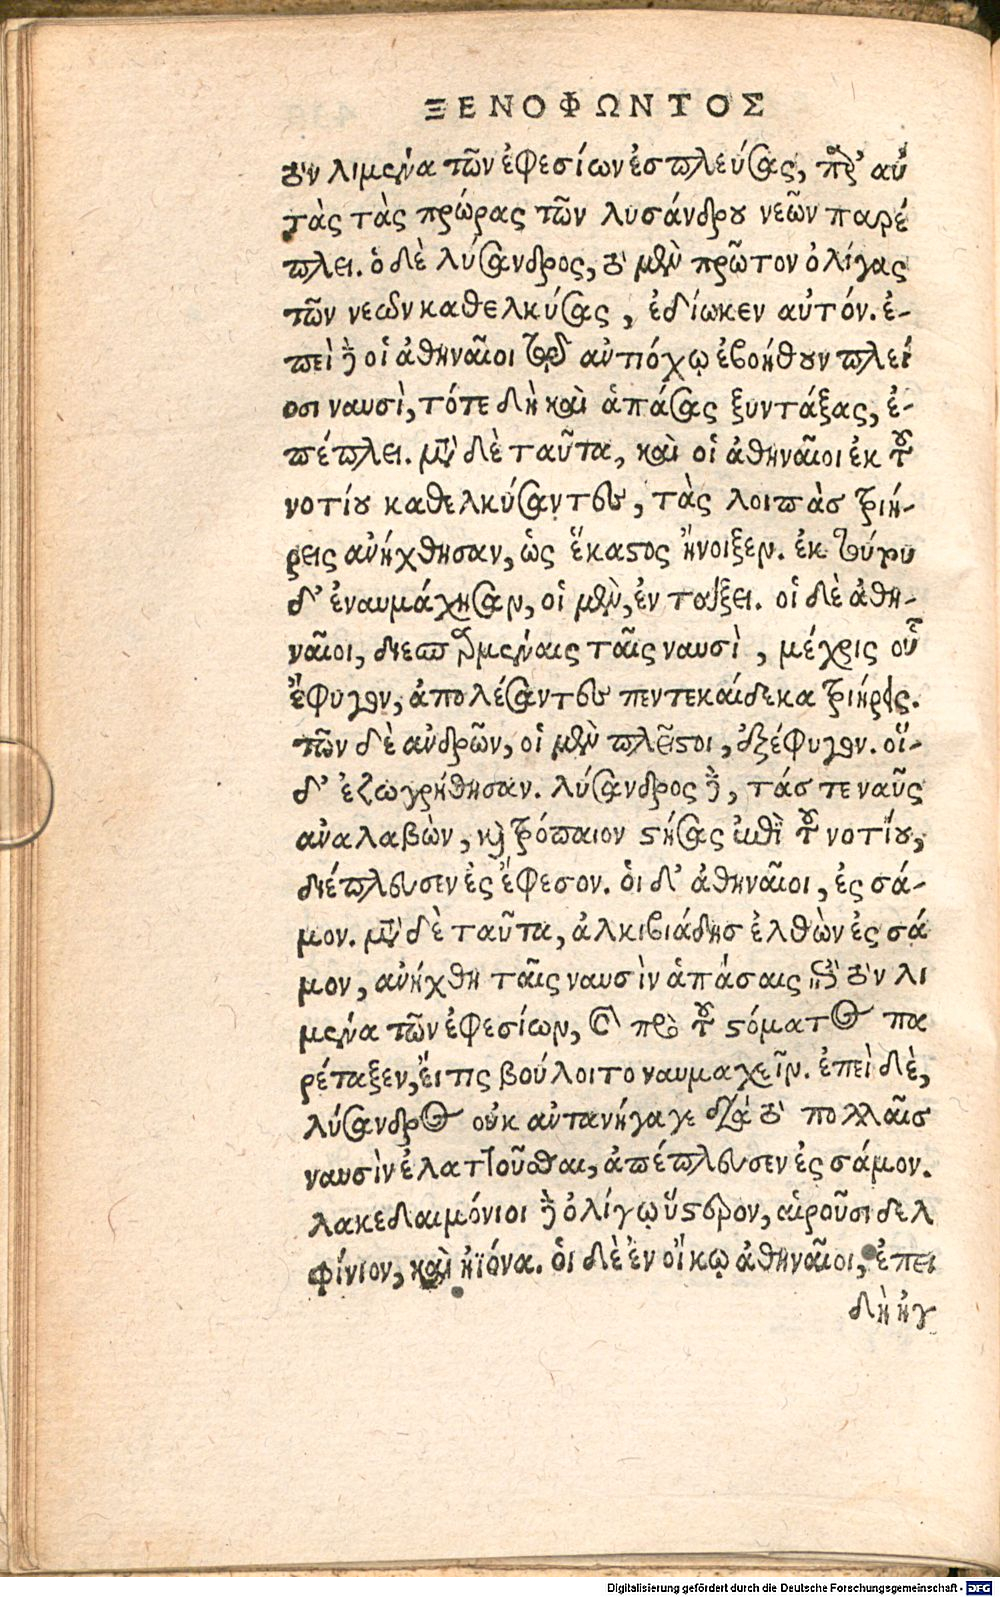 ΞΕΝΟΦΩΝΤΟΣ
τὸν λιμένα τῶν ἐφεσίων ἐσπλεύσας, παρ' αὐ
τὰς τὰς πρώρας τῶν λυσάνδρου νεῶν παρέ
πλει. ὁ δὲ λύσανδρος, τὸ μὲν πρῶτον ὀλίγας
τῶν νεῶν καθελκύσας, ἐδίωκεν αὐτόν. ἐ-
πεὶ δὲ οἱ ἀθηναῖοι τῷ ἀντιόχῳ ἐβοήθουν πλεί
οσι ναυσὶ, τότε δὴ καὶ ἁπάσας ξυντάξας, ἐ-
πέπλει. μετὰ δὲ ταῦτα, καὶ οἱ ἀθηναῖοι ἐκ τοῦ
νοτίου καθελκύσαντες, τὰς λοιπὰσ τριή-
ρεις ἀνήχθησαν, ὡς ἕκαστος ἤνοιξεν. ἐκ τούτου
δ' ἐναυμάχησαν, οἱ μὲν, ἐν τάξει. οἱ δὲ ἀθη-
ναῖοι, διεσπαρμέναις ταῖς ναυσὶ, μέχρις οὗ
ἔφυγον, ἀπολέσαντες πεντεκαίδεκα τριήρεις.
τῶν δὲ ἀνδρῶν, οἱ μὲν πλεῖστοι, ἐξέφυγον. οἵ-
δ' ἐζωγρήθησαν. λύσανδρος δὲ, τάς τε ναῦς
ἀναλαβὼν, καὶ τρόπαιον στήσας ἐπὶ τοῦ νοτίου,
διέπλευσεν ἐς ἔφεσον. ὁι δ' ἀθηναῖοι, ἐς σά-
μον. μετὰ δὲ ταῦτα, ἀλκιβιάδησ ἐλθὼν ἐς σά
μον, ἀνήχθη ταῖς ναυσὶν ἁπάσαις ἐπὶ τὸν λι
μένα τῶν ἐφεσίων, καὶ πρὸ τοῦ στόματος πα
ρέταξεν, ἔι τις βούλοιτο ναυμαχεῖν. ἐπεὶ δὲ,
λύσανδρος οὐκ ἀντανήγαγε διὰ τὸ πολλαῖσ
ναυσὶν ἐλαττοῦσθαι, ἀπέπλευσεν ἐς σάμον.
λακεδαιμόνιοι δὲ ὀλίγῳ ὕστερον, αἱροῦσι δελ
φίνιον, καὶ ἠϊόνα. ὁι δὲ ἐν οἴκῳ ἀθηναῖοι, ἐπει
δὴ ἠγ
Digitalisierung gefördert durch die Deutsche Forschungsgemeinschaft - DFG